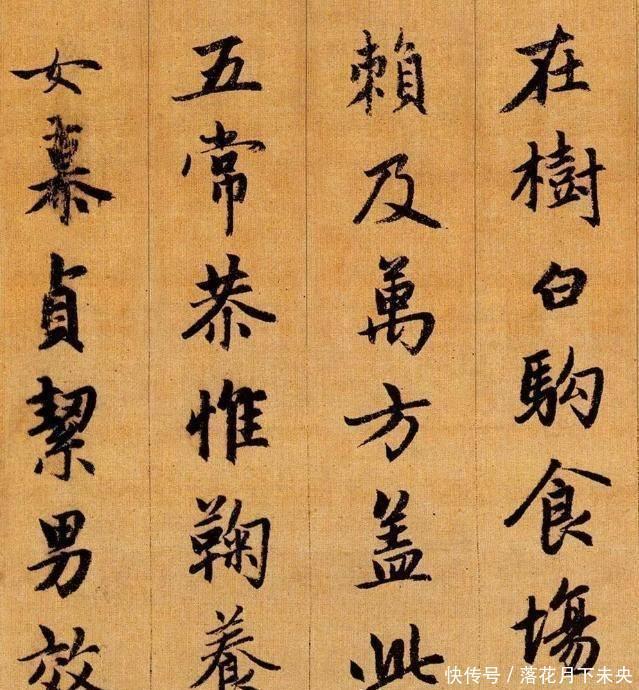 在樹白駒食場
賴及萬方盖此
五常恭惟鞠養
女慕貞絜男效
快传号/落花月下未央